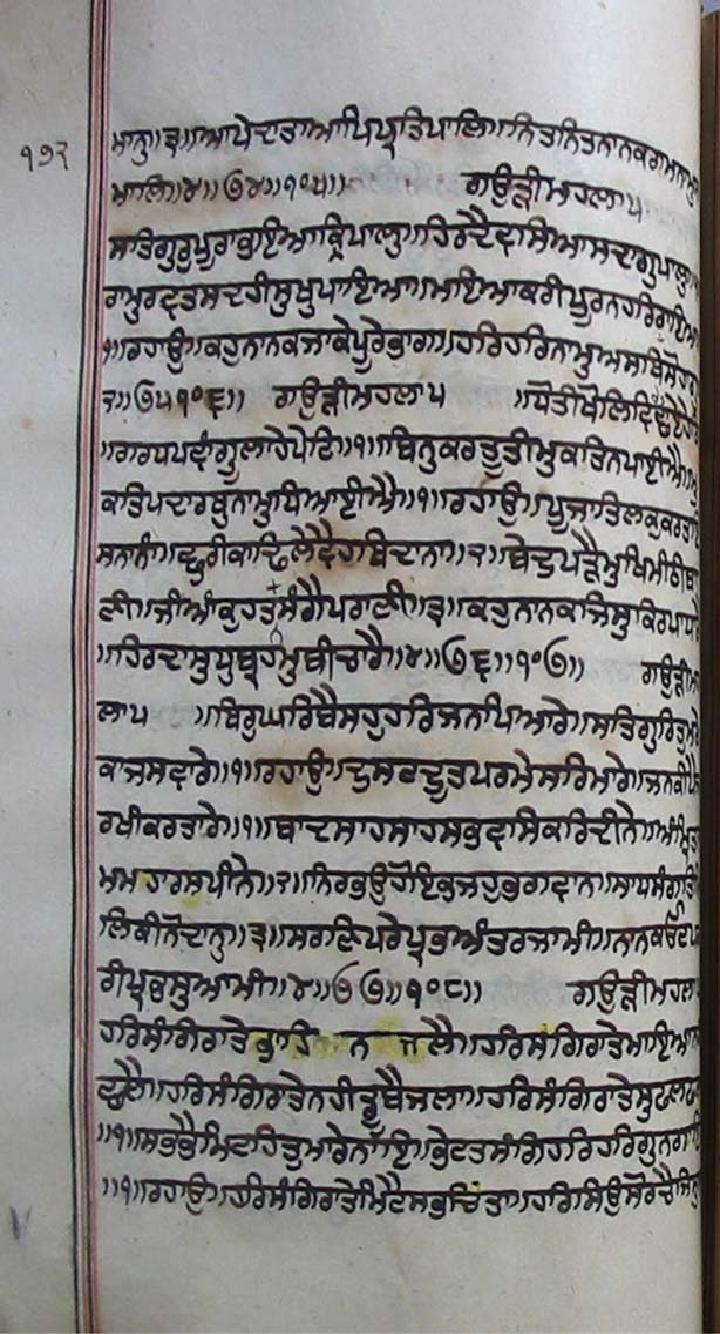 ੧੭੨
ਮਾਨੁ॥੩॥ਆਪੇਦਾਤਾਆਪਿਪ੍ਰਤਿਪਾਲਿ॥ਨਿਤਨਿਤਨਾਨਕਰਾਮਨਾਮੁ
ਮਾਲਿ॥੪॥੭੪॥੧੦੫॥ ਗਉੜੀਮਹਲਾ੫
ਸਤਿਗੁਰੁਪੂਰਾਭਇਆਕ੍ਰਿਪਾਲੁ॥ਹਿਰਦੈਵਸਿਆਸਦਾਗੁਪਾਲੁ॥
ਰਾਮੁਰਵਤਸਦਹੀਸੁਖੁਪਾਇਆ॥ਮਇਆਕਰੀਪੂਰਨਹਰਿਰਾਇਆ
੧॥ਰਹਾਉ॥ਕਹੁਨਾਨਕਜਾਕੇਪੂਰੇਭਾਗ॥ਹਰਿਹਰਿਨਾਮੁਅਸਥਿਰੁਸੋਹਾਗੁ
੨॥੭੫੧੦੬॥ ਗਉੜੀਮਹਲਾ੫ ॥ਧੋਤੀਖੋਲਿ
॥ਗਰਧਪਵਾਂਗੂਲਾਹੇਪੇਟਿ॥੧॥ਬਿਨੁਕਰਤੂਤੀਮੁਕਤਿਨਪਾਈਐ॥ਮੁ
ਕਤਿਪਦਾਰਥੁਨਾਮੁਧਿਆਈਐ॥੧॥ਰਹਾਉ॥ਪੂਜਾਤਿਲਕੁਕਰਤਇ
ਸਨਾਨਾਂ॥ਛੁਰੀਕਾਢਿਲੇਵੈਹਥਿਦਾਨਾ॥੨॥ਬੇਦੁਪੜੈਮੁਖਿਮੀਠੀਬਾ
ਣੀ॥ਜੀਆਂਕੁਹਤਸੰਗੈਪਰਾਣੀ॥੩॥ਕਹੁਨਾਨਕਜਿਸੁਕਿਰਪਾਧਾਰੈ
॥ਹਿਰਦਾਸੁਧੁਬ੍ਰਹਮੁਬੀਚਾਰੈ॥੪॥੭੬॥੧੦੭॥ ਗਉੜੀਮ
ਲਾ੫ ॥ਥਿਰੁਘਰਿਬੈਸਹੁਹਰਿਜਨਪਿਆਰੇ॥ਸਤਿਗੁਰਿਤੁਮਰੇ
ਕਾਜਸਵਾਰੇ॥੧॥ਰਹਾਉ॥ਦੁਸਟਦੂਤਪਰਮੇਸਰਿਮਾਰੇ॥ਜਨਕੀਪੈਜ
ਰਖੀਕਰਤਾਰੇ॥੧॥ਬਾਦਸਾਹਸਾਹਸਭਵਸਿਕਰਿਦੀਨੇ॥ਅੰਮ੍ਰਿਤਨਾ
ਮਮਹਾਰਸਪੀਨੇ॥੨॥ਨਿਰਭਉਹੋਇਭਜਹੁਭਗਵਾਨ॥ਸਾਧਸੰਗਤਿਮਿ
ਲਿਕੀਨੋਦਾਨੁ॥੩॥ਸਰਣਿਪਰੇਪ੍ਰਭਅੰਤਰਜਾਮੀ॥ਨਾਨਕਓਟਪਕ
ਰੀਪ੍ਰਭਸੁਆਮੀ॥੪॥੭੭॥੧੦੮॥ ਗਉੜੀਮਹਲਾ
ਹਰਿਸੰਗਿਰਾਤੇਭਾਹਿ ਨ ਜਲੈ॥ਹਰਿਸੰਗਿਰਾਤੇਮਾਇਆਨ
ਛਲੈ॥ਹਰਿਸੰਗਿਰਾਤੇਨਹੀਡੂਬੈਜਲਾ॥ਹਰਿਸੰਗਿਰਾਤੇਸੁਫਲਫਲਾ
॥੧॥ਸਭਭੈਮਿਟਹਿਤੁਮਾਰੇਨਾਂਇ॥ਭੇਟਤਸੰਗਿਹਰਿਹਰਿਗੁਨਗਾਇ
॥੧॥ਰਹਾਉ॥ਹਰਿਸੰਗਿਰਾਤੇਮਿਟੈਸਭਚਿੰਤਾ॥ਹਰਿਸਿਉਸੋਰਚੈਜਿਸੁ